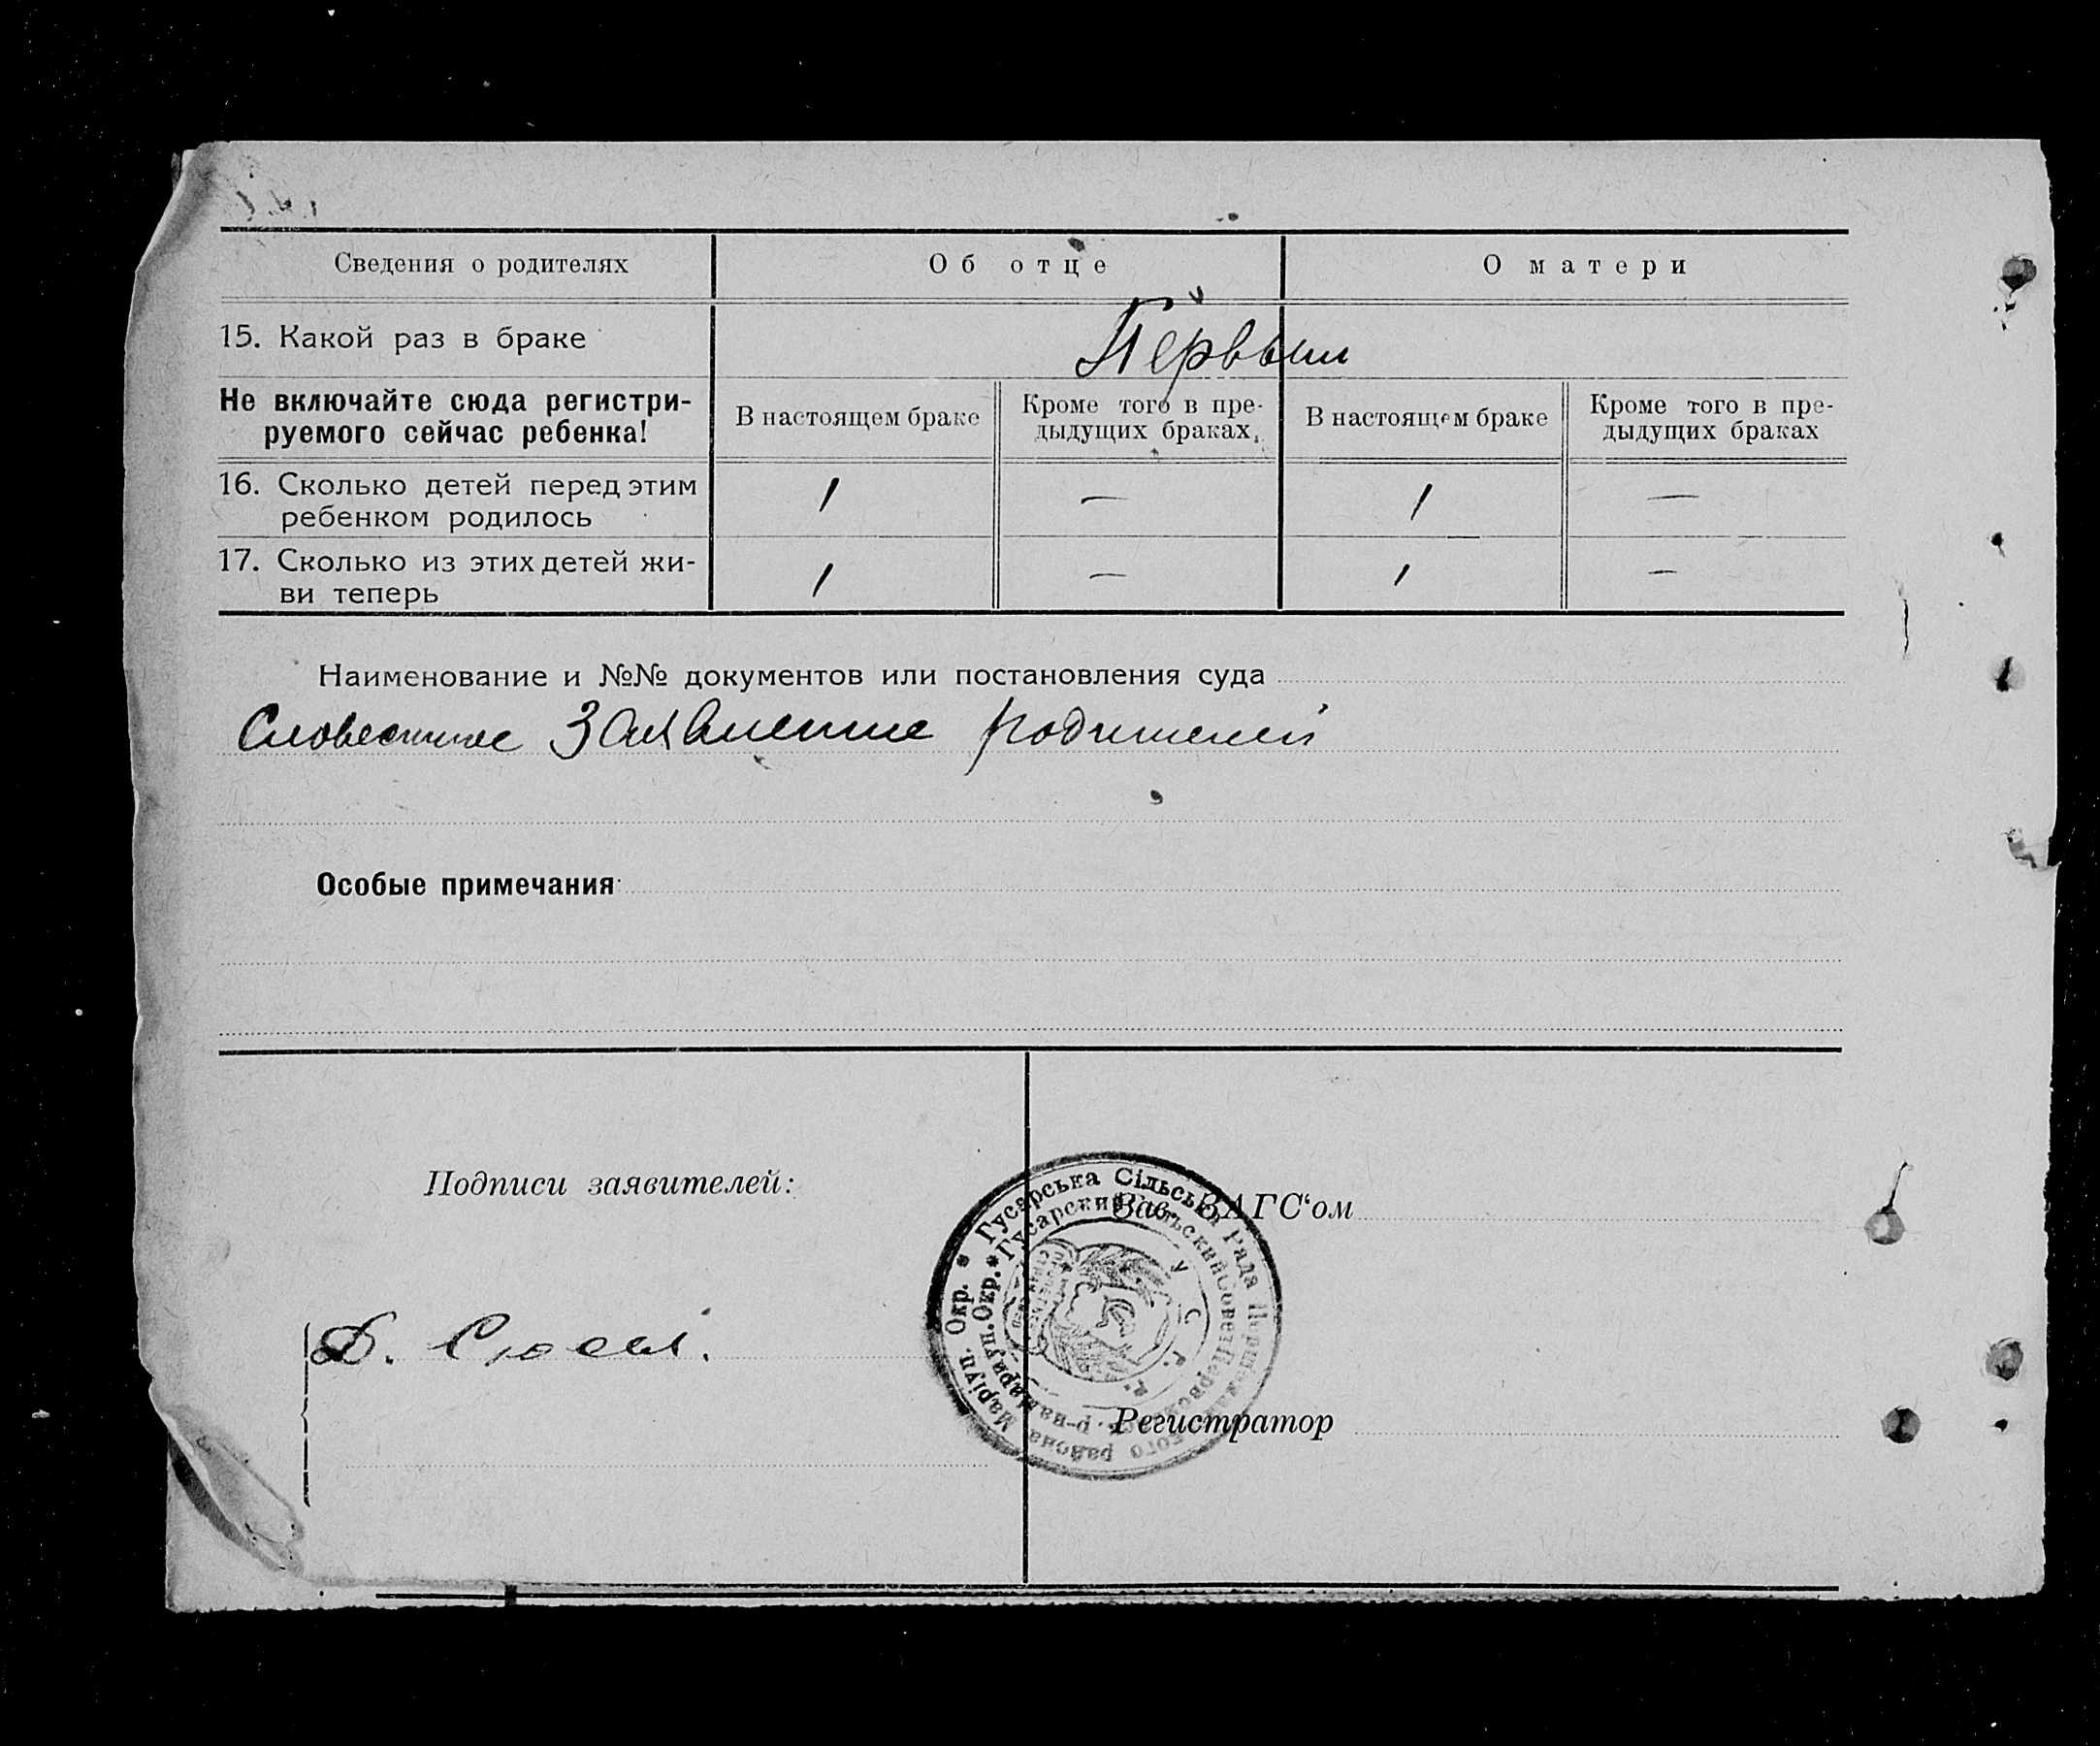 Сведения о родителях
Об отце
О матери
15. Какой раз в браке
Первый
Не включайте сюда регистри-
руемого сейчас ребенка!
В настоящем браке
Кроме того в пре-
дыдущих браках.
В настоящем браке
Кроме того в пре-
дыдущих браках
16. Сколько детей перед этим
ребенком родилось
1 — 1 —
17. Сколько из этих детей жи-
ви теперь
1 — 1 —
Наименование и №№ документов или постановления суда
Словесное Заявление родителей
Особые примечания
Подписи заявителей:
Зав. ЗАГС‘ом
Д.
Регистратор
* Гусарська Сільська Рада
района Маріуп. Окр.
* Гусарский Сельский Совет
р-на Мариуп. Окр.
У. С. Р. Р.